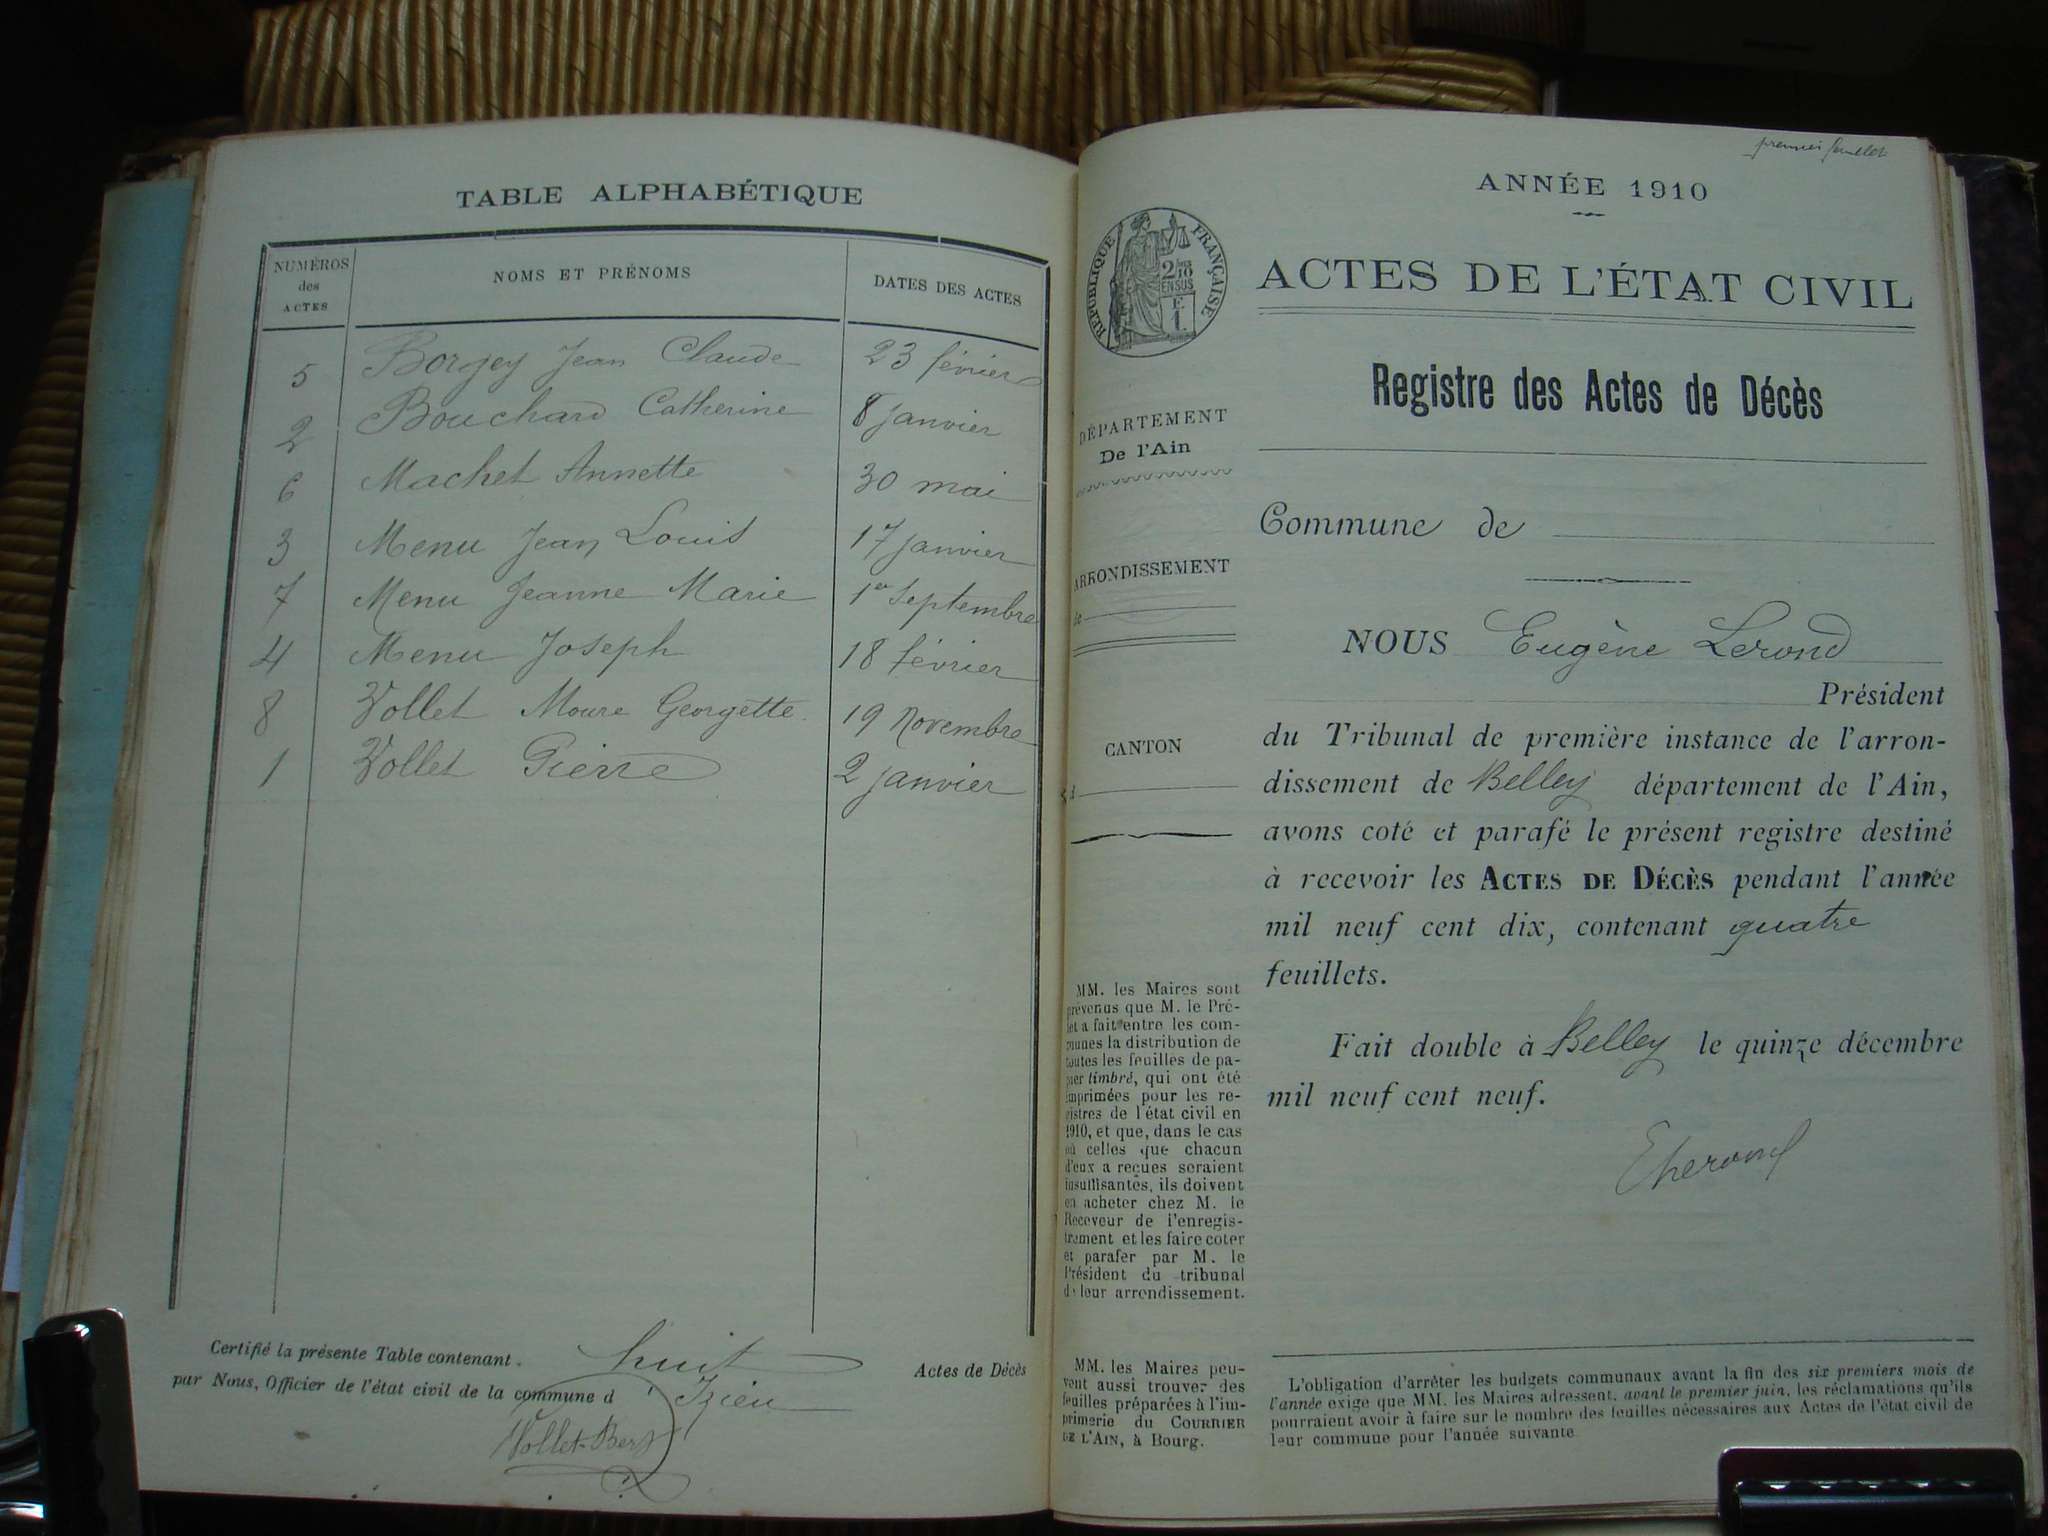 TABLE ALPHABÉTIQUE
NUMÉROS des ACTES
NOMS ET PRÉNOMS
DATES DES ACTES
5 Borgey Jean Claude 23 février
2 Bouchard Catherine 8 janvier
6 Machet Annette 30 mai
3 Menu Jean Louis 17 janvier
7 Menu Jeanne Marie 1er Septembre
4 Menu Joseph 18 février
8 Vollet Georgette 19 Novembre
1 Vollet Pierre 2 janvier
Certifié la présente Table contenant huit Actes de Décès
par Nous, Officier de l'état civil de la commune d'Izieu
Vollet-Bert
premier feuillet
ANNÉE 1910
RÉPUBLIQUE FRANÇAISE
ACTES DE L'ÉTAT CIVIL
Registre des Actes de Décès
DÉPARTEMENT
De l'Ain
Commune de
ARRONDISSEMENT
de
NOUS Eugène Lerond
Président
du Tribunal de première instance de l'arron-
dissement de Belley département de l'Ain,
avons coté et parafé le présent registre destiné
à recevoir les ACTES DE DÉCÈS pendant l'année
mil neuf cent dix, contenant quatre
feuillets.
Fait double à Belley le quinze décembre
mil neuf cent neuf.
CANTON
d
MM. les Maires sont
prévenus que M. le Pré-
fet a fait entre les com-
munes la distribution de
toutes les feuilles de pa-
pier timbré, qui ont été
imprimées pour les re-
gistres de l'état civil en
1910, et que, dans le cas
où celles que chacun
d'eux a reçues seraient
insuffisantes, ils doivent
en acheter chez M. le
Receveur de l'enregis-
trement et les faire coter
et parafer par M. le
Président du tribunal
de leur arrondissement.
MM. les Maires peu-
vent aussi trouver des
feuilles préparées à l'im-
primerie du COURRIER
DE L'AIN, à Bourg.
L'obligation d'arrêter les budgets communaux avant la fin des six premiers mois de
l'année exige que MM. les Maires adressent, avant le premier juin, les réclamations qu'ils
pourraient avoir à faire sur le nombre des feuilles nécessaires aux Actes de l'état civil de
leur commune pour l'année suivante